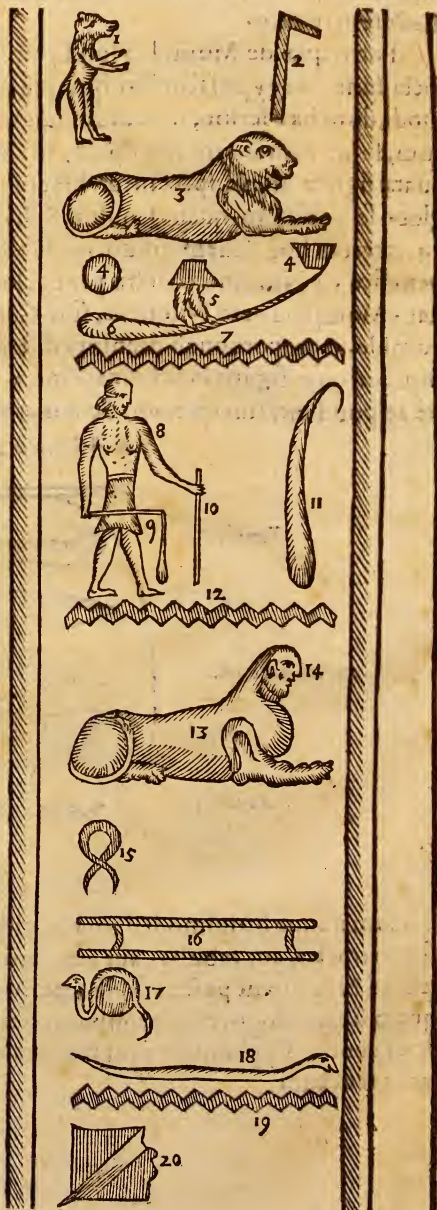 1 2
3
4 4
5
7
8
9 10 11
12
14
13
15
16
17
18
19
20